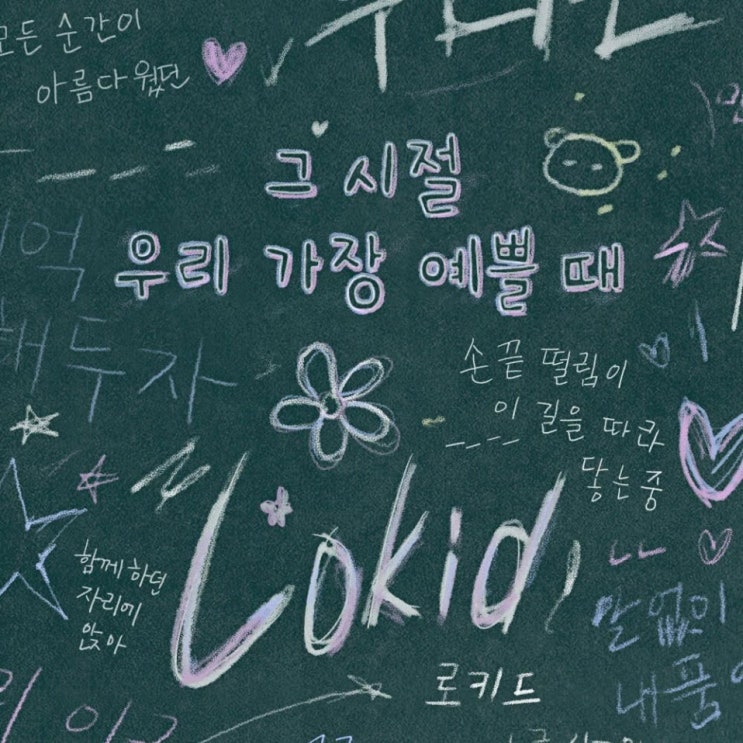 모든 순간이
아름다웠던
우리는
그 시절
우리 가장 예쁠 때
기억
해두자
손끝 떨림이
이 길을 따라
닿는 중
Lokid
함께하던
자리에
앉아
말없이
내 품
로키드